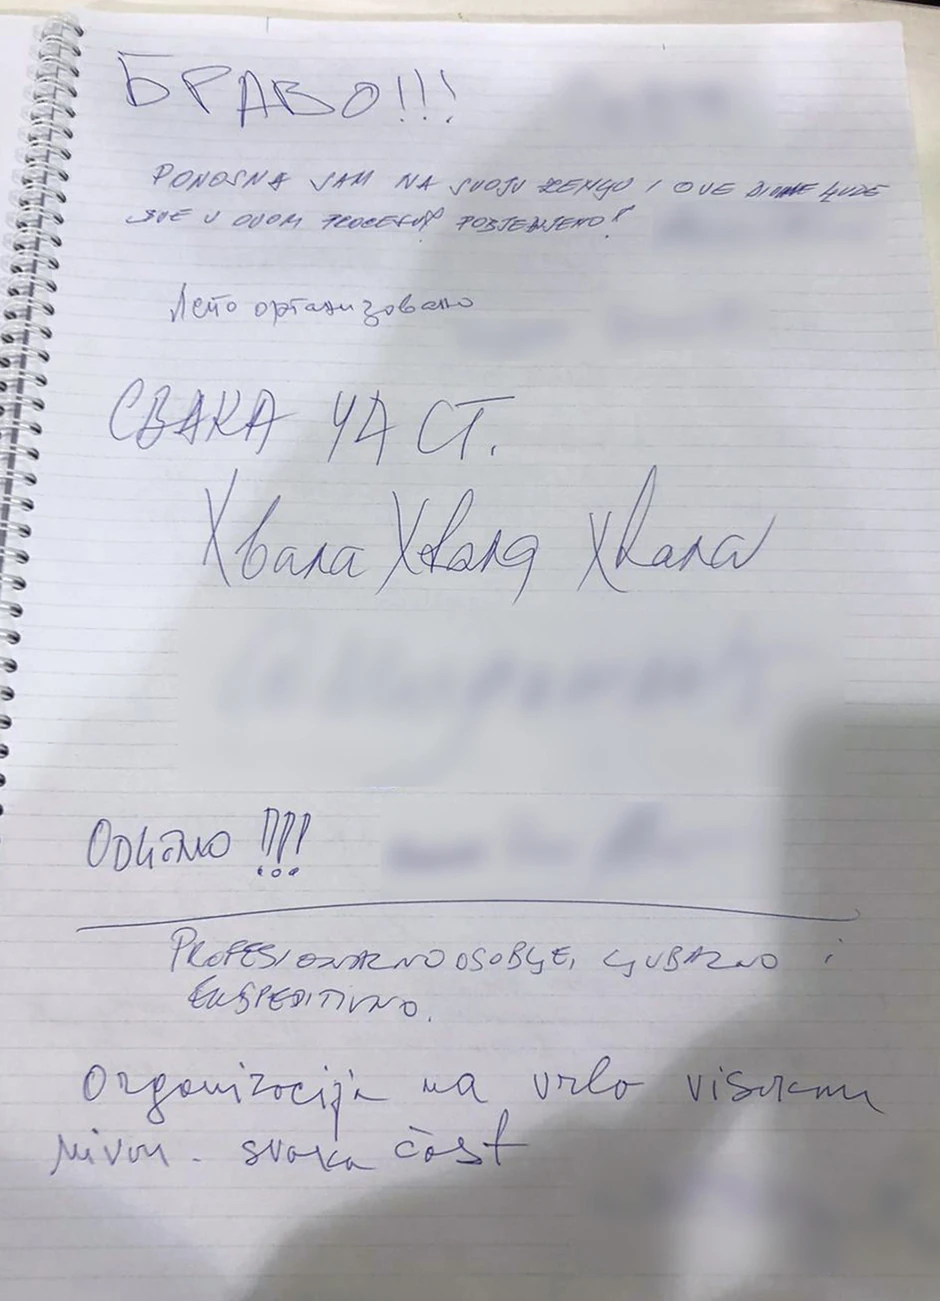 БРАВО!!!
PONOSNA SAM NA SVOJU ZEMLJU I OVE DIVNE LJUDE
SVE U OVOM POBJEDNJENO!
Лепо организовано
СВАКА ЧАСТ.
Хвала Хвала Хвала
Odlično !!!!
PROFESIONALNO OSOBLJE, LJUBAZNO i
EKSPEDITIVNO.
Organizacija na vrlo visokom
nivou. svaka čast